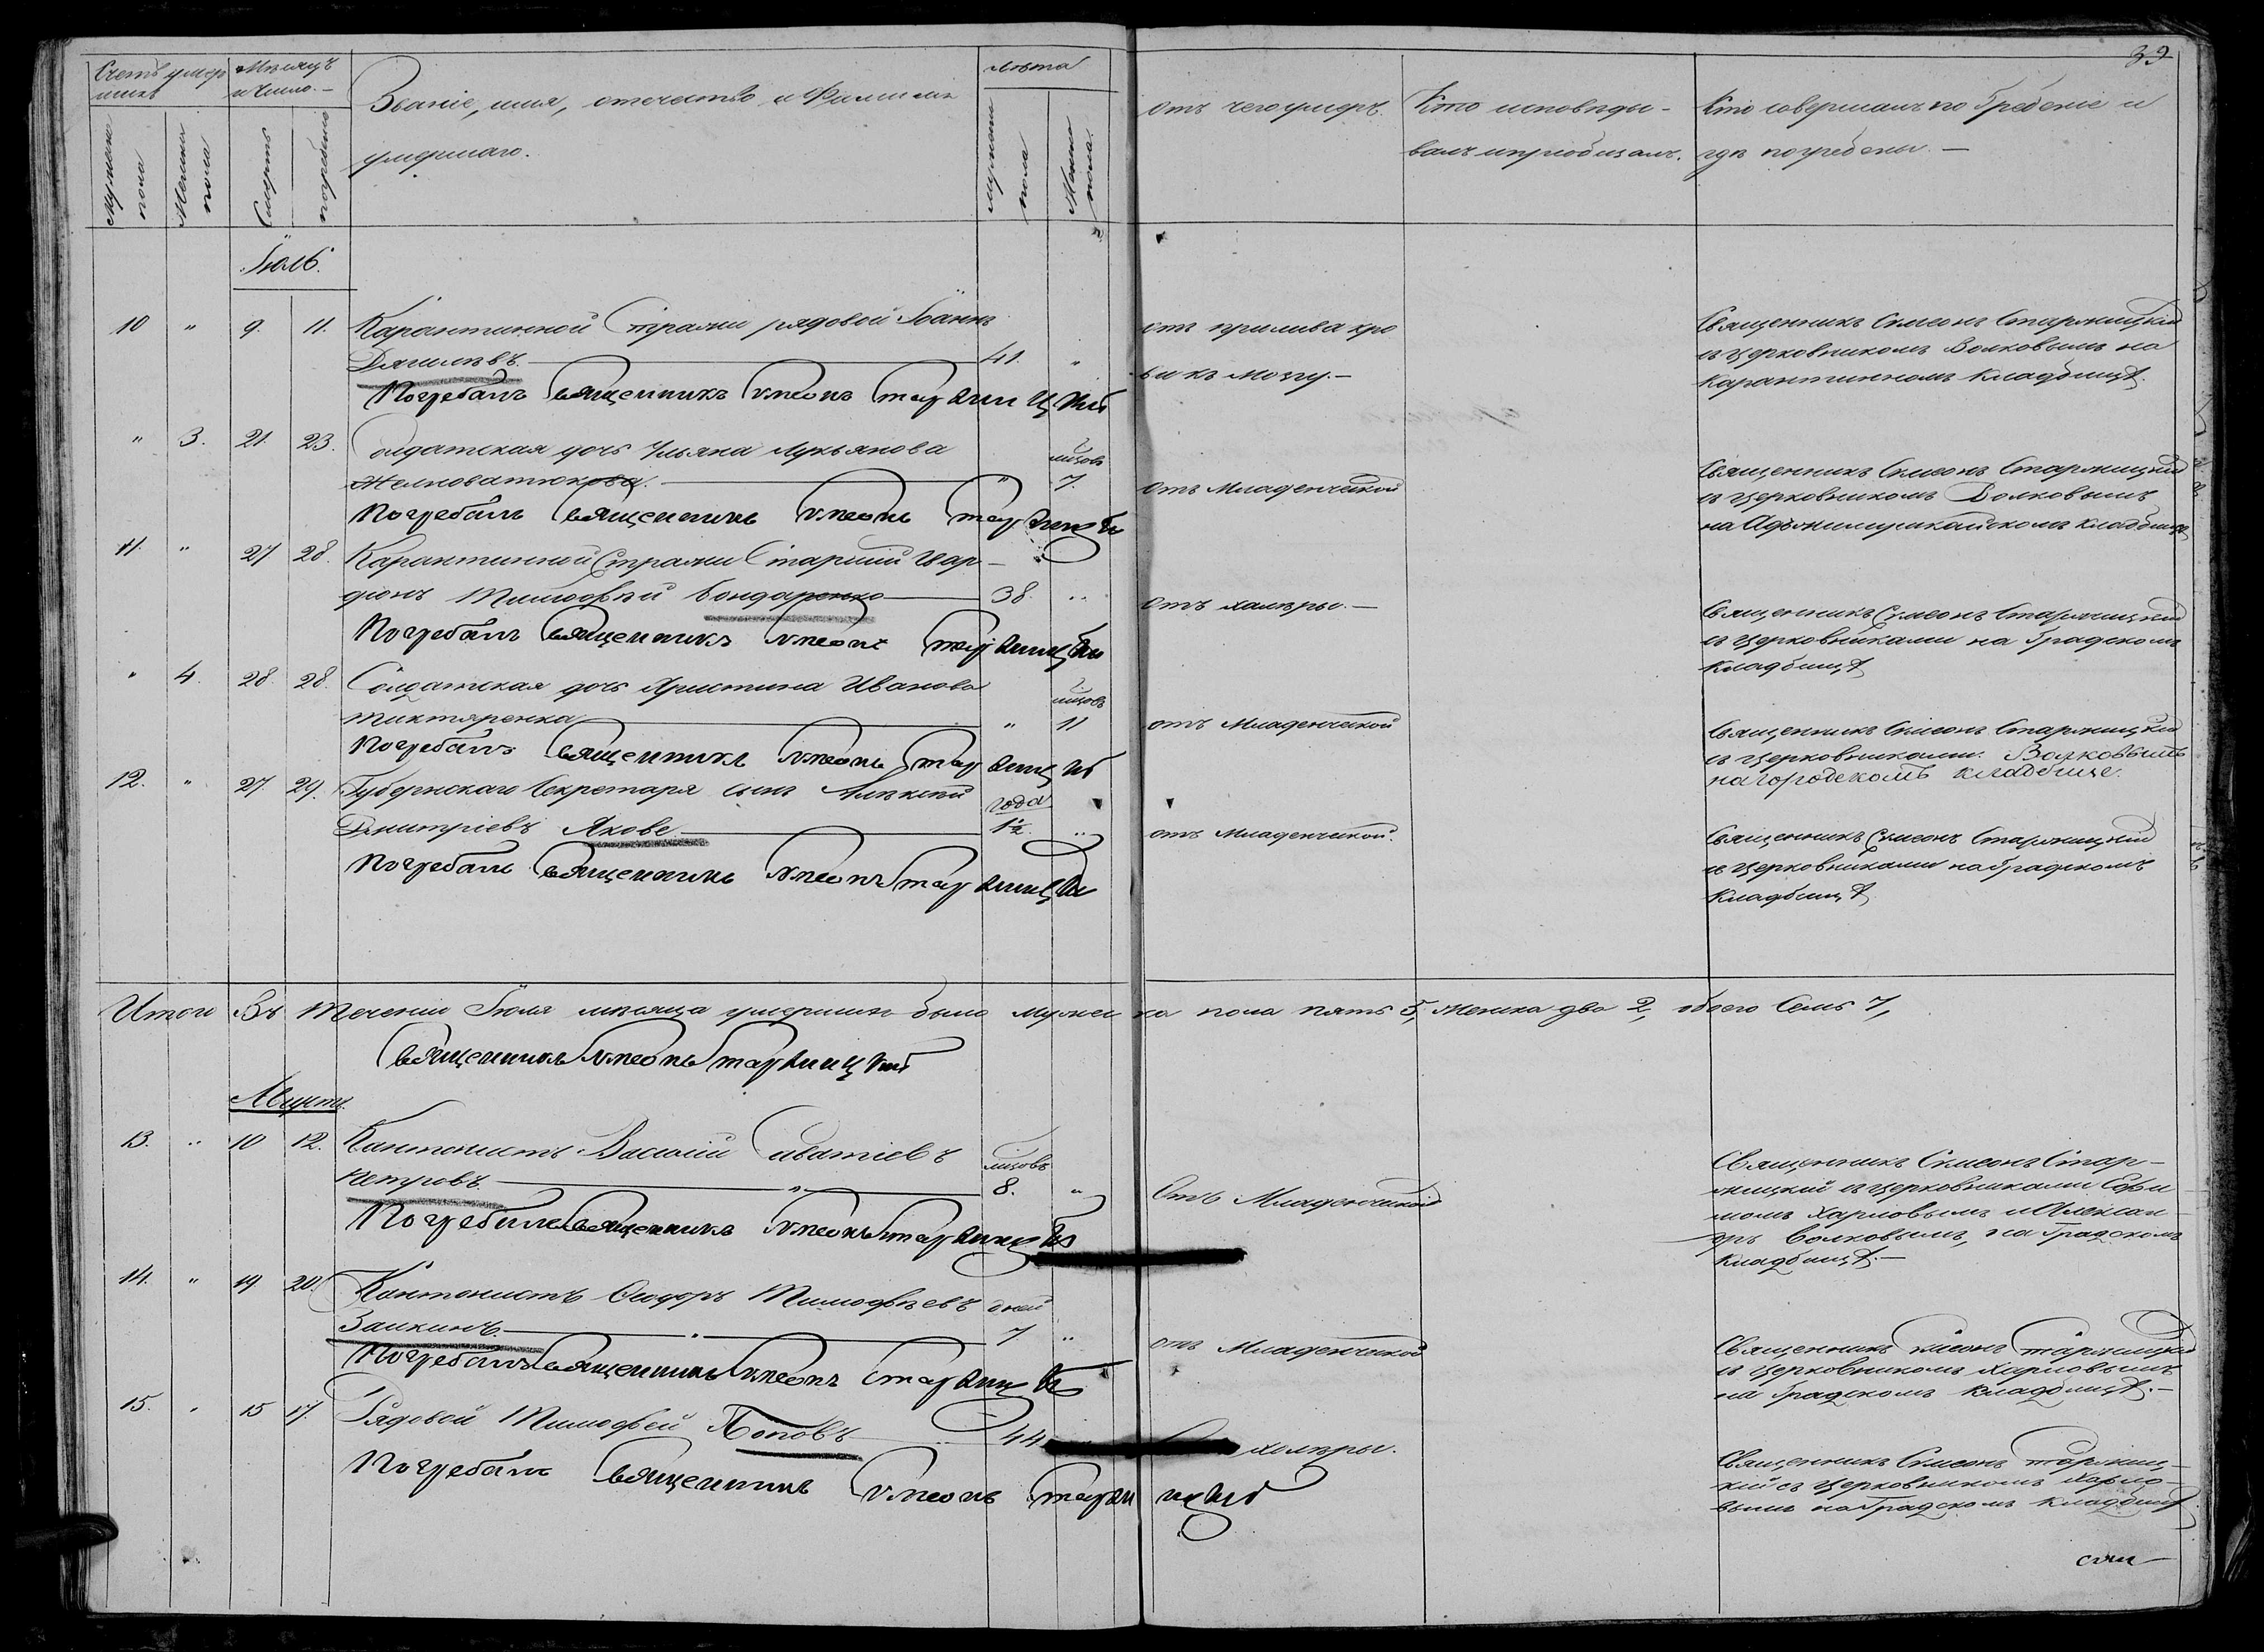 39
Счетъ умершихъ
Мѣсяцъ и число.
Званіе, имя, отечество и Фамилія
умершаго.
Лѣта
отъ чего умеръ.
Кто исповѣды-
валъ и пріобщалъ.
Кто совершалъ погребеніе и
гдѣ погребены. —
Мужеска пола
Женска пола
Смерть
погребенія
мужеска пола
Женска пола.
Іюль.
10 " 9. 11. Карантинной Стражи рядовой Іоаннъ
41. "
отъ прилива кро
ви къ мозгу. —
Священникъ Симеонъ Старжицкій
съ церковникомъ Волковымъ на
карантинномъ кладбищѣ.
Погребалъ Священникъ Симеонъ Старжицкій
" 3. 21. 23. Солдатская дочь Ульяна Лукьянова
" мцовъ 7.
отъ Младенческой
Священникъ Симеонъ Старжицкій
съ церковникомъ Волковымъ
кладбищѣ
Погребалъ Священникъ Симеонъ Старжицкій
11. " 27 28. Карантинной Стражи Старшій Гвар-
діонъ Тимофѣй Бондаренко 38. "
отъ холеры. —
Священникъ Симеонъ Старжицкій
съ церковниками на Градскомъ
кладбищѣ
Погребалъ Священникъ Симеонъ Старжицкій
" 4. 28. 28. Солдатская дочь Христина Иванова
Тиктяренка " мцовъ 11
отъ Младенческой
Священникъ Симеонъ Старжицкій
съ церковниками. Волковымъ
на городскомъ кладбище.
Погребалъ Священникъ Симеонъ Старжицкій
12. " 27. 29. Губернскаго Секретаря сынъ Алексѣй
Дмитріевъ Якове года 1½. "
отъ Младенческой.
Священникъ Симеонъ Старжицкій
съ церковниками на Градскомъ
кладбищѣ
Погребалъ Священникъ Симеонъ Старжицкій
Итого Въ теченіи Іюля мѣсяца умершихъ было мужеска пола пять 5, женска два 2, обоего Семь 7,
Священникъ Симеонъ Старжицкій
Августъ.
13. " 10 12. Кантонистъ Василій Саватіевъ
Петровъ " мцовъ 8. "
Отъ Младенческой
Священникъ Симеонъ Стар-
жицкій съ церковниками
Харловымъ и Алексан-
дръ Волковымъ, на Градскомъ
кладбищѣ. —
Погребалъ Священникъ Симеонъ Старжицкій
14. " 19 20. Кантонистъ Ѳеодоръ Тимофѣевъ
Заикинъ. " дней 7 "
отъ Младенческой
Священникъ Симеонъ Старжицкій
съ церковникомъ Харловымъ
на Градскомъ кладбищѣ. —
Погребалъ Священникъ Симеонъ Старжицкій
15. " 15 17. Рядовой Тимофей Поповъ 44
холеры.
Священникъ Симеонъ Старжиц-
кій съ церковникомъ Харло-
вымъ на Градскомъ кладбищѣ
Погребалъ Священникъ Симеонъ Старжицкій